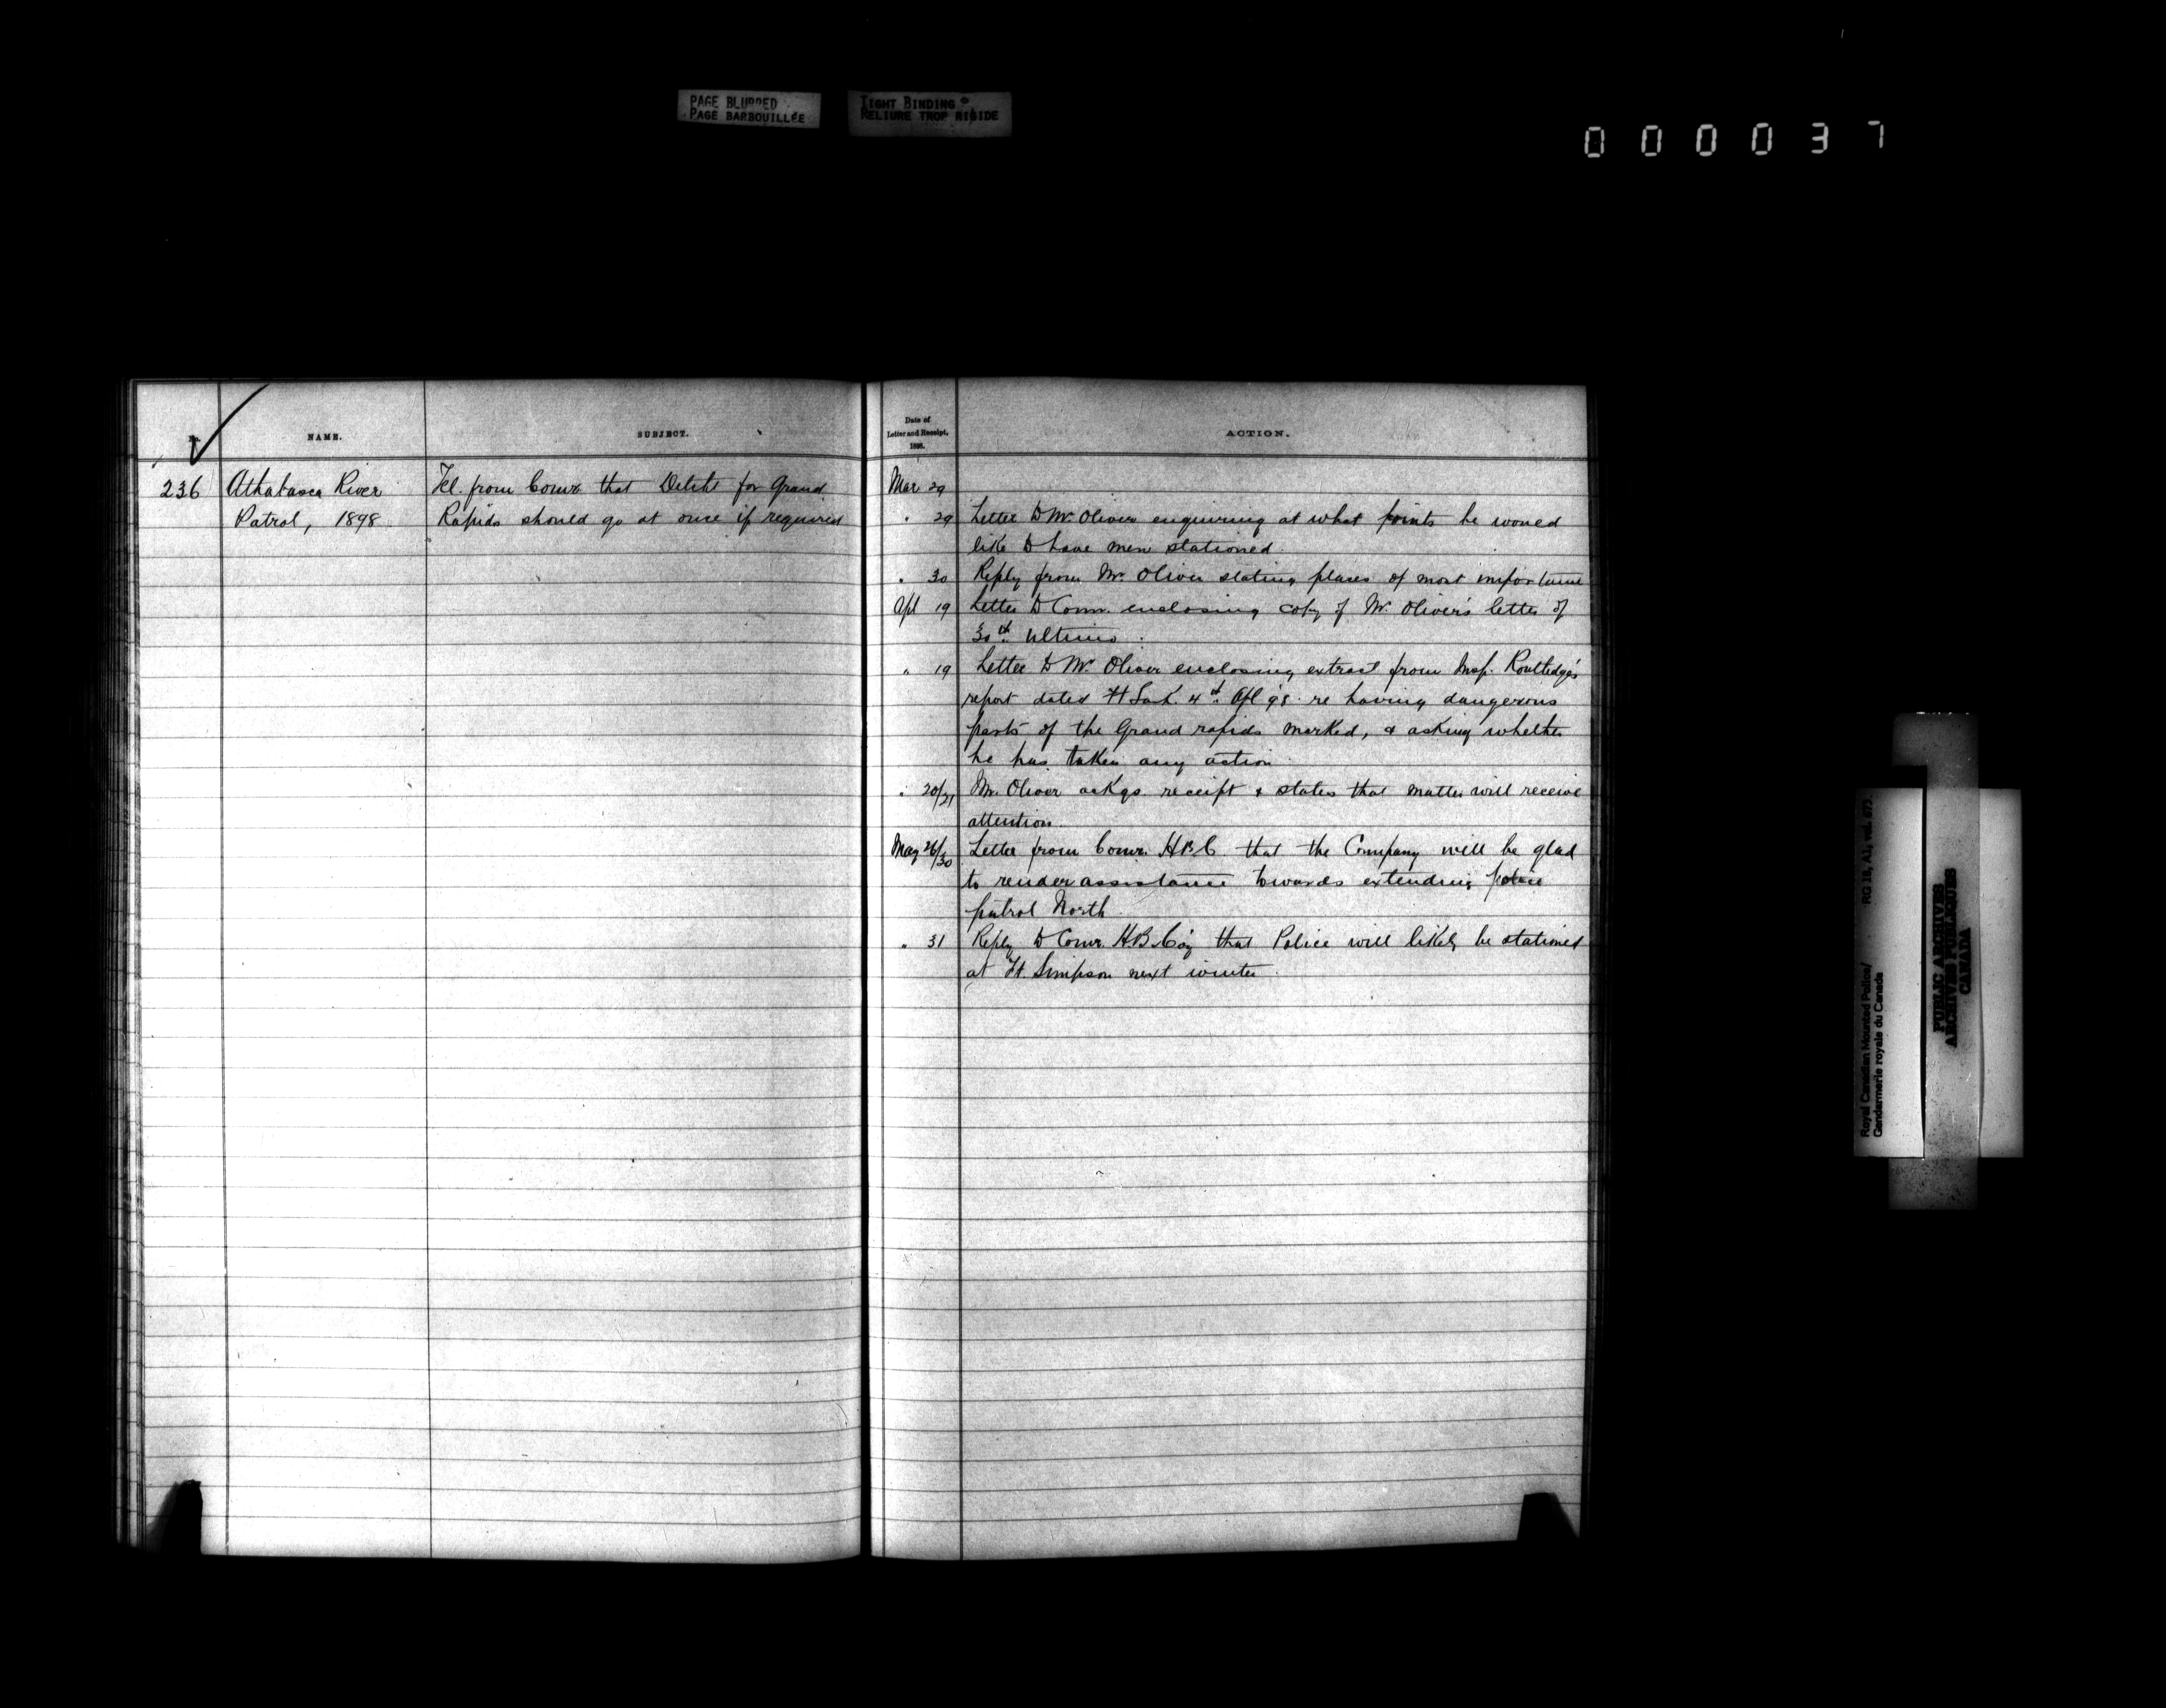 PAGE BLURRED
PAGE BARBOUILLÉE
TIGHT BINDING
RELIURE TROP RIGIDE
0 0 0 0 3 7
No.
NAME.
SUBJECT.
Date of
Letter and Receipt,
1898.
ACTION.
236 Athabasca River Tel. from Comr. that Detcht for Grand Mar 29
Patrol, 1898. Rapids should go at once if required
" 29 Letter to Mr. Oliver enquiring at what points he would
like to have men stationed.
" 30 Reply from Mr. Oliver stating places of most importance
Apl 19 Letter to Comr. enclosing copy of Mr. Oliver's letter of
30th Ultimo.
" 19 Letter to Mr. Oliver enclosing extract from Insp. Routledge's
report dated Ft Sask. 4th Apl 98. re having dangerous
parts of the Grand rapids marked, & asking whether
he has taken any action.
" 20/21 Mr. Oliver ackgs. receipt & states that matter will receive
attention.
May 26/30 Letter from Comr. H.B.C. that the Company will be glad
to render assistance towards extending police
patrol North.
" 31 Reply to Comr. H.B.Co'y that Police will likely be stationed
at Ft. Simpson next winter.
Royal Canadian Mounted Police/ RG 18, A1, vol. 673
Gendarmerie royale du Canada
PUBLIC ARCHIVES
ARCHIVES PUBLIQUES
CANADA